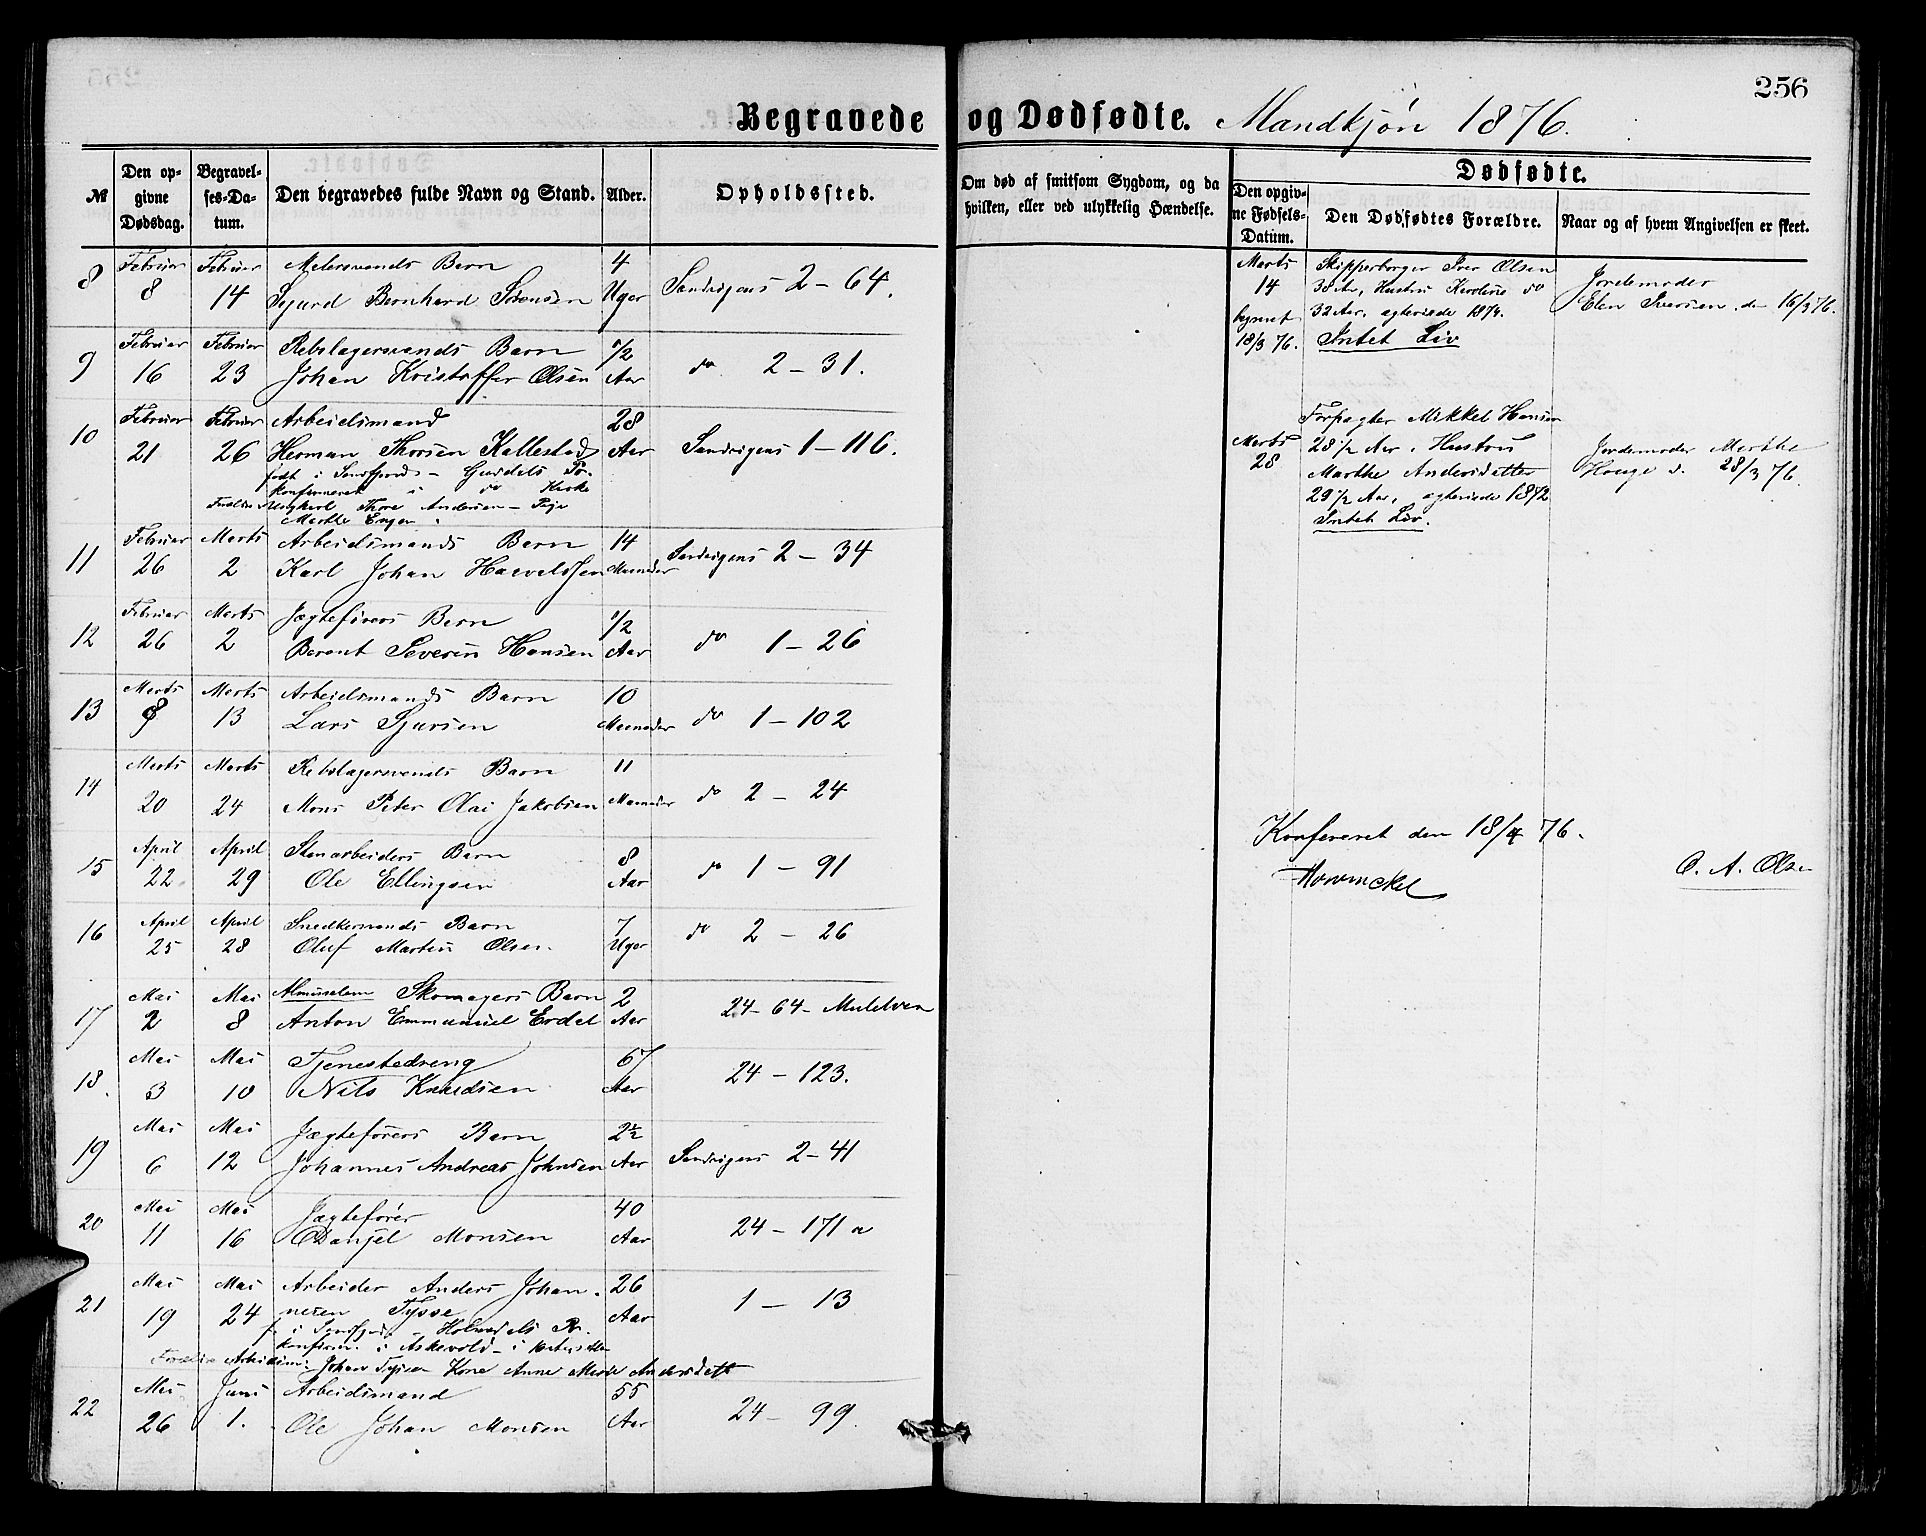 256
Begravede og Dødfødte. Mandkjøn 1876.
№
Den opgivne Dødsdag.
Begravelses-Datum.
Den begravedes fulde Navn og Stand.
Alder.
Opholdssted.
Om død af smitsom Sygdom, og da hvilken, eller ved ulykkelig Hændelse.
Dødfødte.
Den opgivne Fødsels-Datum.
Den Dødfødtes Forældre.
Naar og af hvem Angivelsen er skeet.
8 Februar 8 Februar 14 Barn
Sjurd Bernhard Sørensen 4 Uger Sandvigens 2 – 64.
9 Februar 16 Februar 23 Rebslagersvends Barn
Johan Kristoffer Olsen 1/2 Aar do 2 – 31.
10 Februar 21 Februar 26 Arbeidsmand
Herman Thorsen Kallestad 28 Aar Sandvigens 1 – 116.
født i Søndfjord –
konfirmeret i do
Thore Andersen – Pige
Marthe
11 Februar 26 Marts 2 Arbeidsmands Barn
Karl Johan 14 Maaneder Sandvigens 2 – 34
12 Februar 26 Marts 2 Jægteførers Barn
Berent Severin Hansen 1/2 Aar do 1 – 26
13 Marts 8 Marts 13 Arbeidsmands Barn
Lars Sjursen 10 Maaneder do 1 – 102
14 Marts 20 Marts 24 Rebslagersvends Barn
Mons Peter Olai Jakobsen 11 Maaneder do 2 – 24
15 April 22 April 29 Stenarbeiders Barn
Ole Ellingsen 8 Aar do 1 – 91
16 April 25 April 28 Snedkersvends Barn
Oluf Martin Olsen. 7 Uger do 2 – 26
17 Mai 2 Mai 8 Almuselem Skomagers Barn
Anton Emmanuel Erdal 2 Aar 24 – 64 – Mulelven
18. Mai 3 Mai 10 Tjenestedreng
Nils Knudsen 67 Aar 24 – 123.
19 Mai 6 Mai 12 Jægteførers Barn
Johannes Andreas Johnsen 2½ Aar Sandvigens 2 – 41
20 Mai 11 Mai 16 Jægtefører
Danjel Monsen 40 Aar 24 – 171 a
21 Mai 19 Mai 24 Arbeider Anders Johan-
nesen Tysse 26 Aar 1 – 13
f. i Søndfjord,
konfirm. i Askevold –
Johan Kone Anne Marie Andersdatt
22 Mai 26 Juni 1. Arbeidsmand
Ole Johan Monsen 55 Aar 24 – 99.
Marts 14 Skipperborger Iver Olsen
38 Aar, Hustru Karoline do
32 Aar,
Intet Liv
18/3 76.
Jordemoder
Elen Iversen. den 16/3 76.
Marts 28
Forpagter Mikkel Hansen
28 1/2 Aar, Hustru
Marthe Andersdatter
29 1/2 Aar, 1872
Intet Liv.
Jordemoder Marthe
Hauge d. 28/3 76.
Konfereret den 18/4 76.
O. A. Olsen